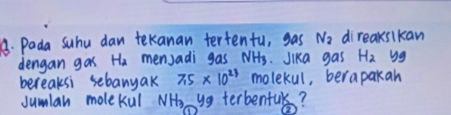 8. Pada suhu dan tekanan tertentu, gas N₂ direaksikan
dengan gas H₂ menjadi gas NH₃. Jika gas H₂ yg
bereaksi sebanyak 7,5 × 10²³ molekul, berapakah
Jumlah molekul NH₃ yg terbentuk?
① ②